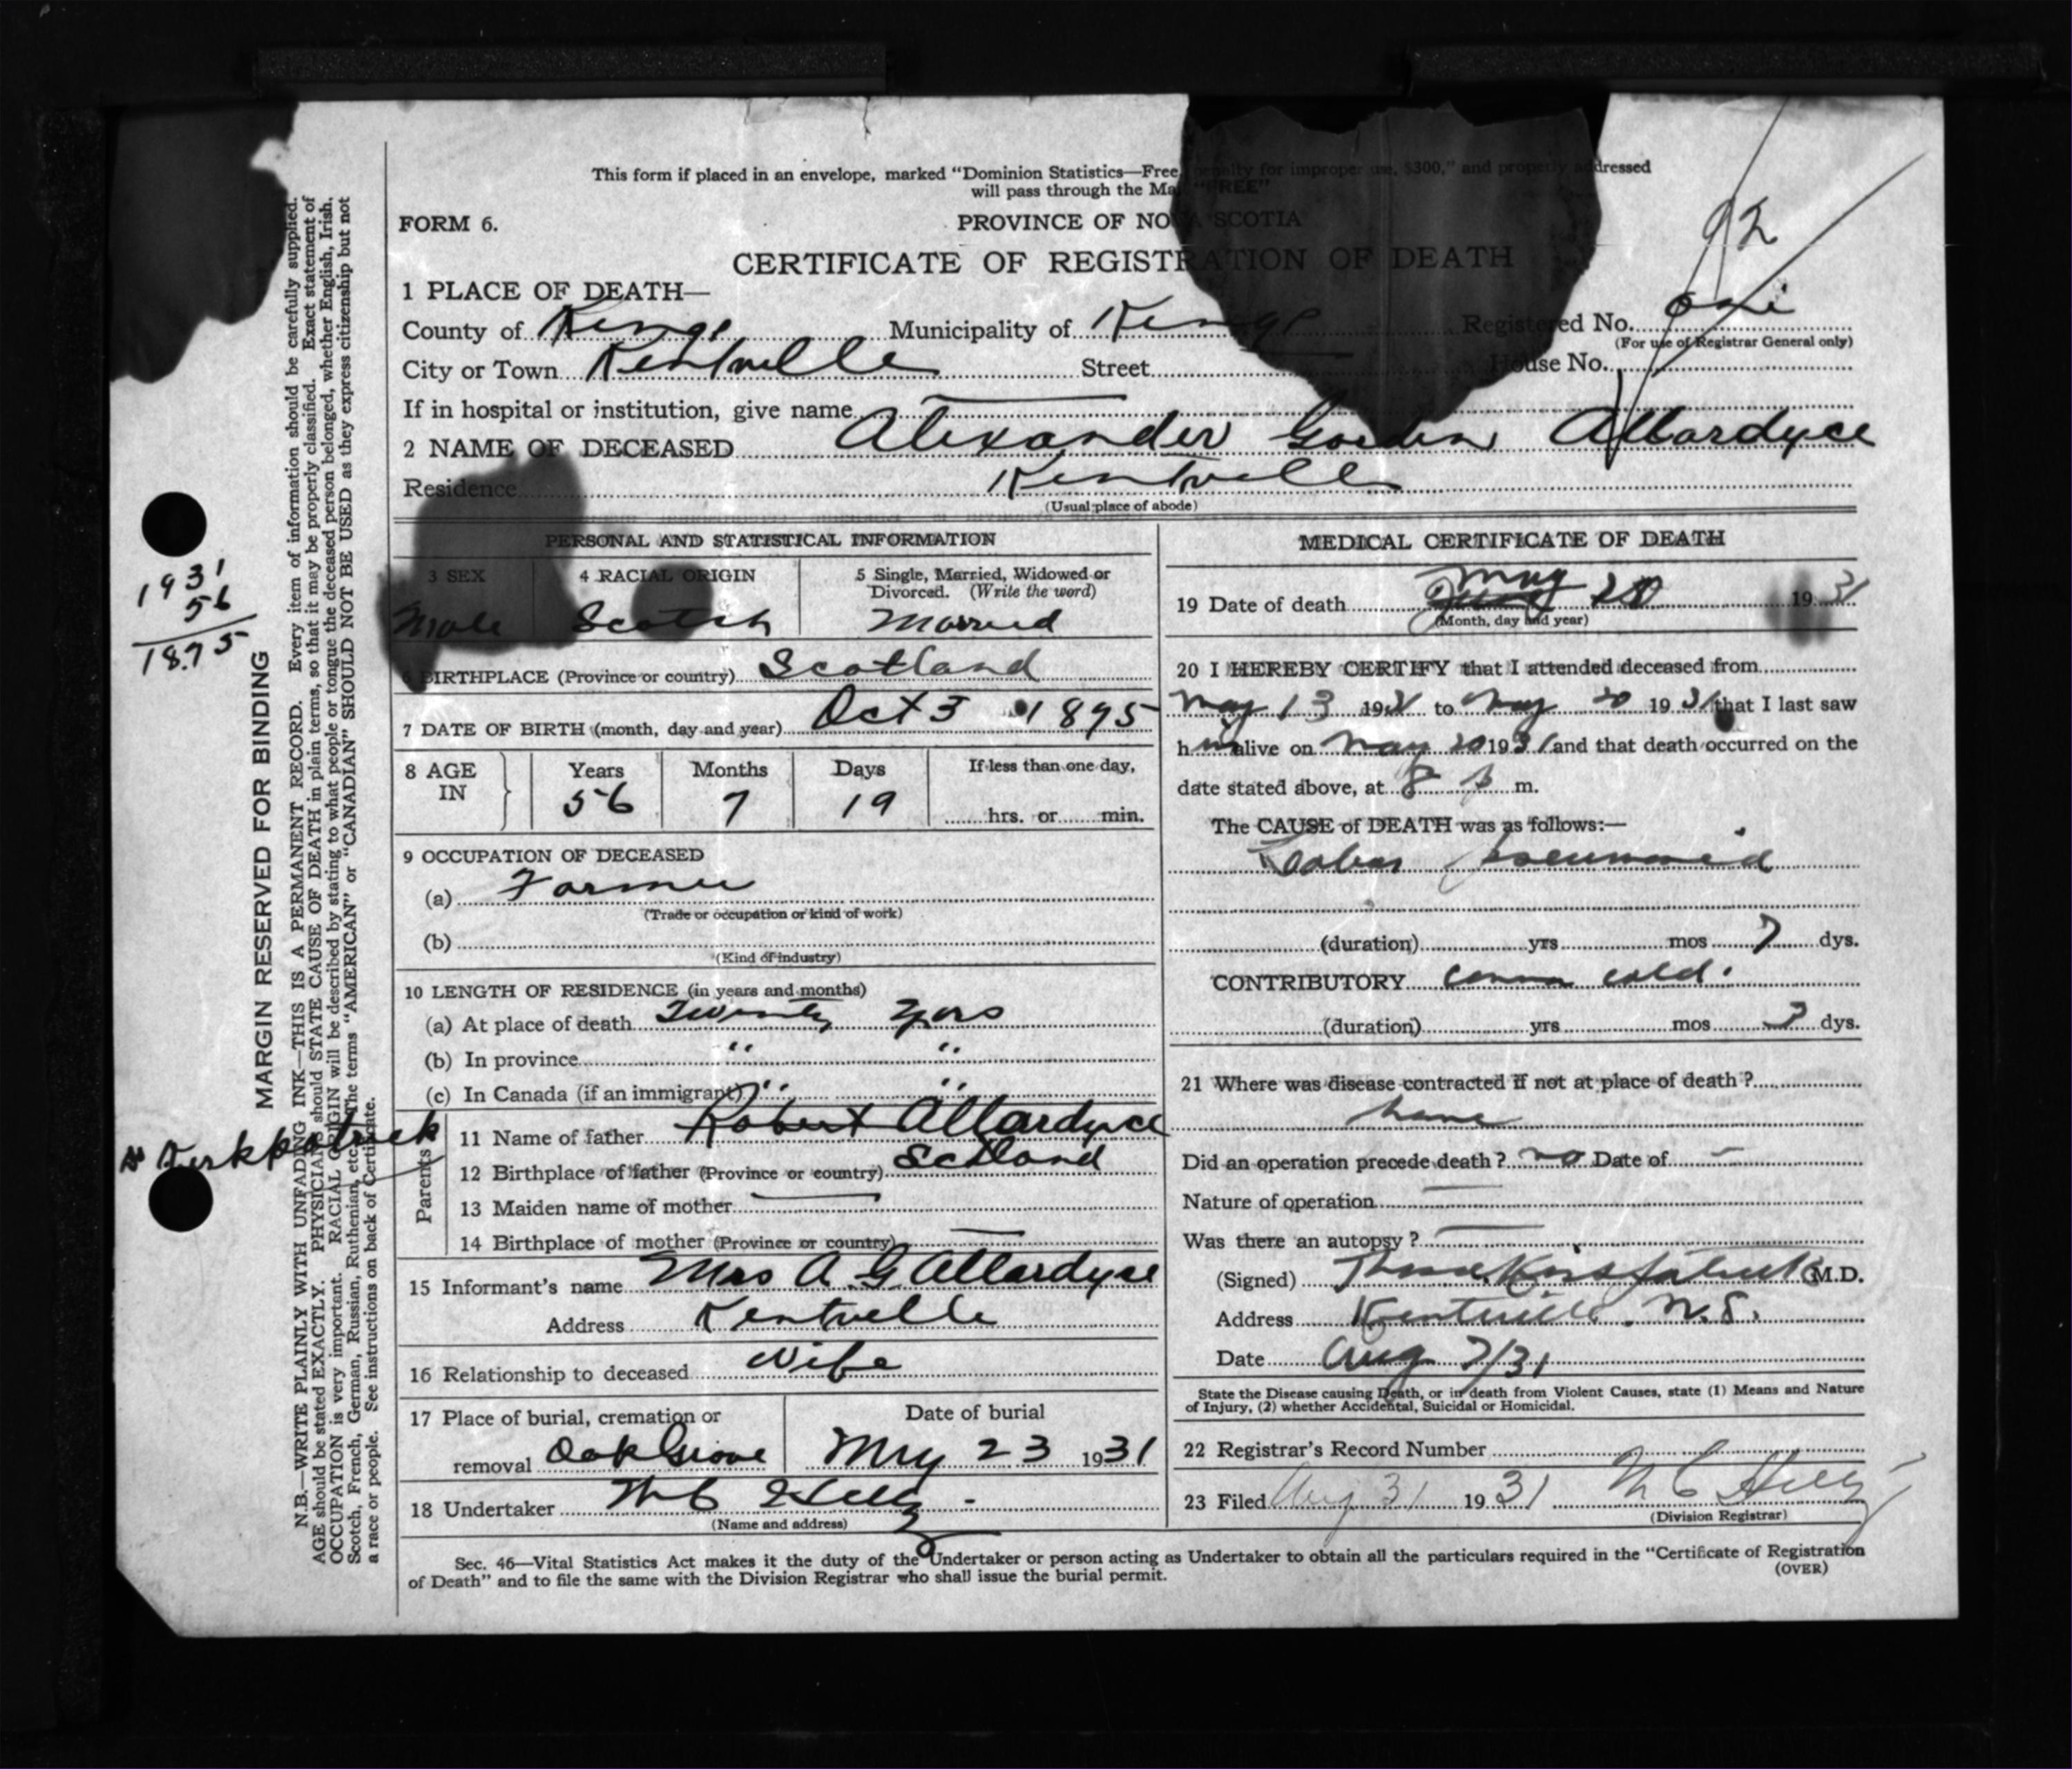 This form if placed in an envelope, marked "Dominion Statistics—Free, penalty for improper use, $300," and properly addressed
will pass through the Mail "FREE"
FORM 6.
PROVINCE OF NOVA SCOTIA
92
CERTIFICATE OF REGISTRATION OF DEATH
1 PLACE OF DEATH—
County of Kings Municipality of Kings Registered No.
(For use of Registrar General only)
City or Town Kentville Street House No.
If in hospital or institution, give name
2 NAME OF DECEASED Alexander Gordon Allardyce
Residence Kentville
(Usual place of abode)
PERSONAL AND STATISTICAL INFORMATION
3 SEX 4 RACIAL ORIGIN 5 Single, Married, Widowed or
Divorced. (Write the word)
Male Scotch Married
6 BIRTHPLACE (Province or country) Scotland
7 DATE OF BIRTH (month, day and year) Oct 3 1875
8 AGE IN Years Months Days If less than one day,
56 7 19 hrs. or min.
9 OCCUPATION OF DECEASED
(a) Farmer
(Trade or occupation or kind of work)
(b)
(Kind of industry)
10 LENGTH OF RESIDENCE (in years and months)
(a) At place of death Twenty Yers
(b) In province " "
(c) In Canada (if an immigrant) " "
Parents
11 Name of father Robert Allardyce
12 Birthplace of father (Province or country) Sctland
13 Maiden name of mother
14 Birthplace of mother (Province or country)
15 Informant's name Mrs A. G. Allardyce
Address Kentville
16 Relationship to deceased Wife
17 Place of burial, cremation or Date of burial
removal Oak Grove May 23 1931
18 Undertaker
(Name and address)
MEDICAL CERTIFICATE OF DEATH
19 Date of death May 20 1931
(Month, day and year)
20 I HEREBY CERTIFY that I attended deceased from
May 13 1931 to May 20 1931 that I last saw
him alive on May 20 1931 and that death occurred on the
date stated above, at 8 p m.
The CAUSE of DEATH was as follows:—
Lobar Pneumonia
(duration) yrs mos 7 dys.
CONTRIBUTORY cold.
(duration) yrs mos dys.
21 Where was disease contracted if not at place of death?
home
Did an operation precede death? no Date of —
Nature of operation —
Was there an autopsy? —
(Signed) Kirkpatrick M.D.
Address Kentville. N.S.
Date Aug 7/31
State the Disease causing Death, or in death from Violent Causes, state (1) Means and Nature
of Injury, (2) whether Accidental, Suicidal or Homicidal.
22 Registrar's Record Number
23 Filed Aug 31 1931
(Division Registrar)
Sec. 46—Vital Statistics Act makes it the duty of the Undertaker or person acting as Undertaker to obtain all the particulars required in the "Certificate of Registration
of Death" and to file the same with the Division Registrar who shall issue the burial permit.
(OVER)
1931
56
1875
Dr Kirkpatrick
MARGIN RESERVED FOR BINDING
N.B.—WRITE PLAINLY WITH UNFADING INK—THIS IS A PERMANENT RECORD. Every item of information should be carefully supplied.
AGE should be stated EXACTLY. PHYSICIANS should STATE CAUSE OF DEATH in plain terms, so that it may be properly classified. Exact statement of
OCCUPATION is very important. RACIAL ORIGIN will be described by stating to what people or tongue the deceased person belonged, whether English, Irish,
Scotch, French, German, Russian, Ruthenian, etc. The terms "AMERICAN" or "CANADIAN" SHOULD NOT BE USED as they express citizenship but not
a race or people. See instructions on back of Certificate.